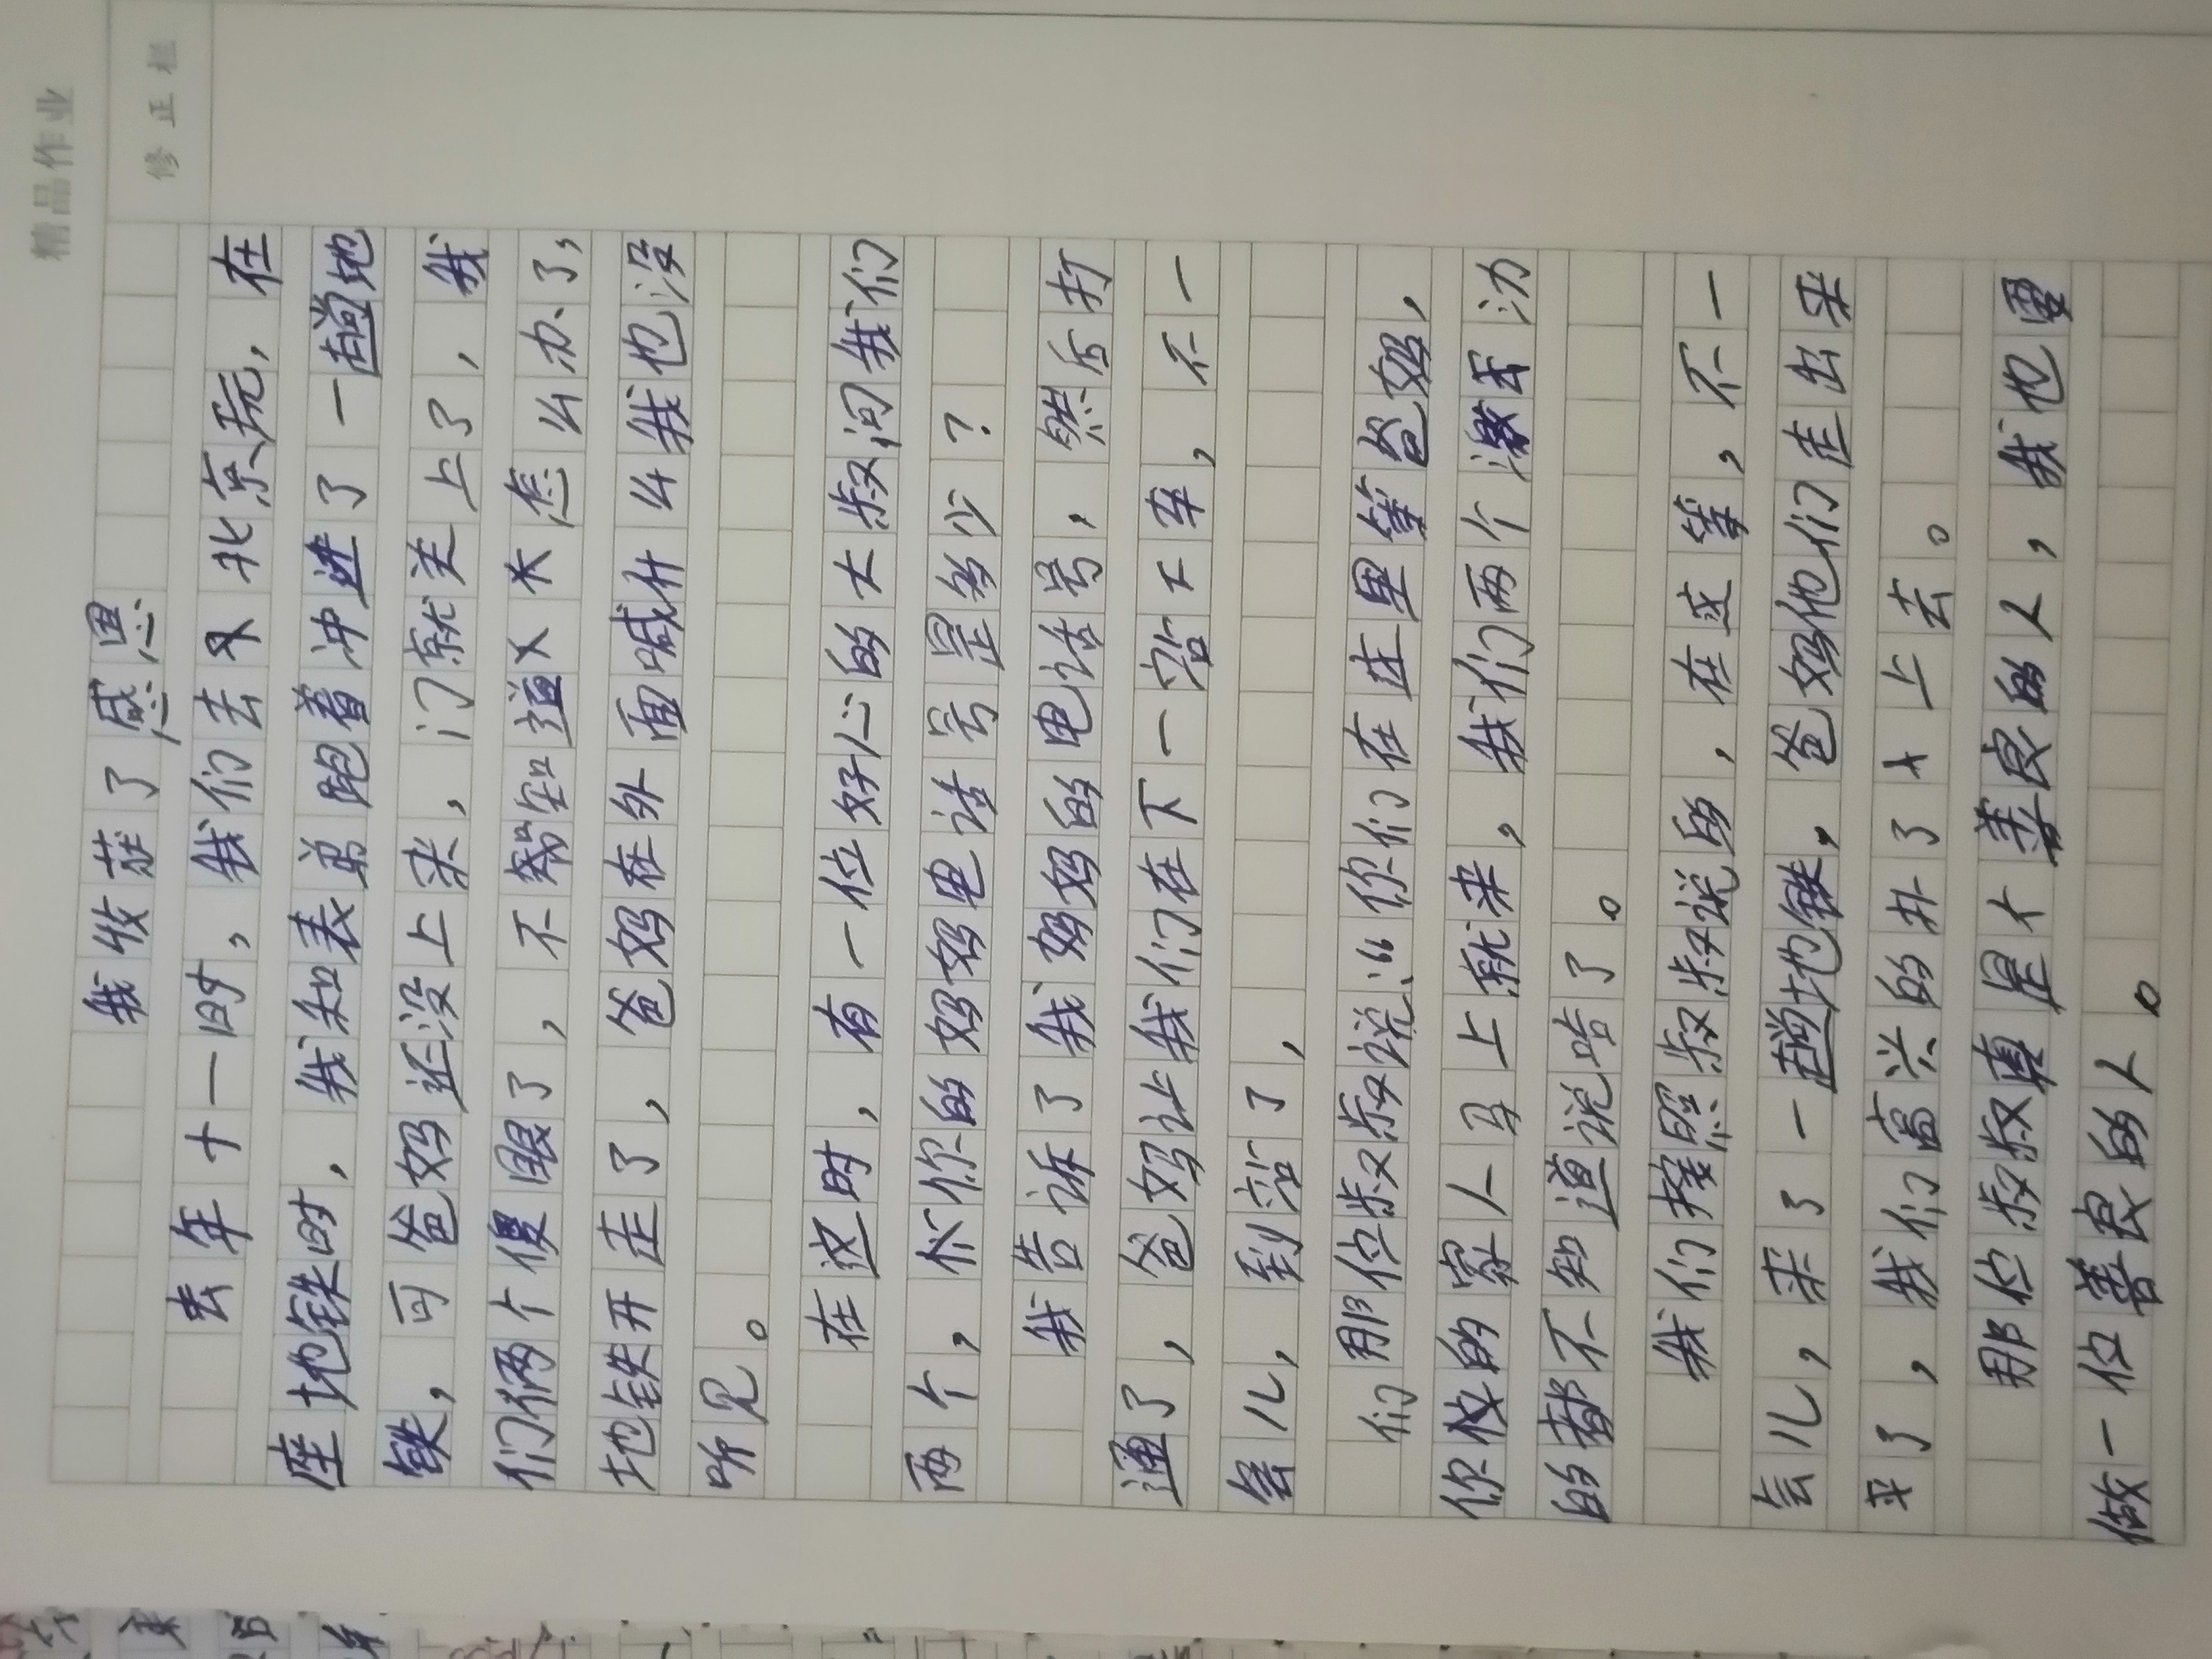 精品作业
修正栏
我收获了感恩
去年十一时，我们去北京玩，在
座地铁时，我和表弟跑着冲进了一趟地
铁，可爸妈还没上来，门就关上了，我
们俩个傻眼了，不知道怎么办了，
地铁开走了，爸妈在外面喊什么我也没
听见。
在这时，有一位好心的大叔问我们
两个，你你的妈妈电话号是多少？
我告诉了我妈妈的电话号，然后打
通了，爸妈让我们在下一站下车，不一
会儿，到站了，
们那位叔叔说:“你们在这里等爸妈，
你的家人马上就来，我们两个激动
的都不知道说啥了。
我们按照叔叔说的，在这等，不一
会儿，来了一趟地铁，爸妈他们走出来
了，我们高兴的扑了上去。
那位叔叔真是个善良的人，我也要
做一位善良的人。